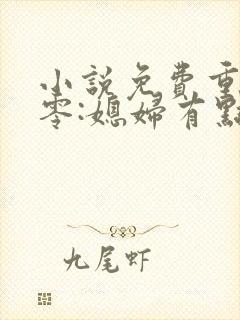 小說免費重
零:媳婦有點
九尾虾